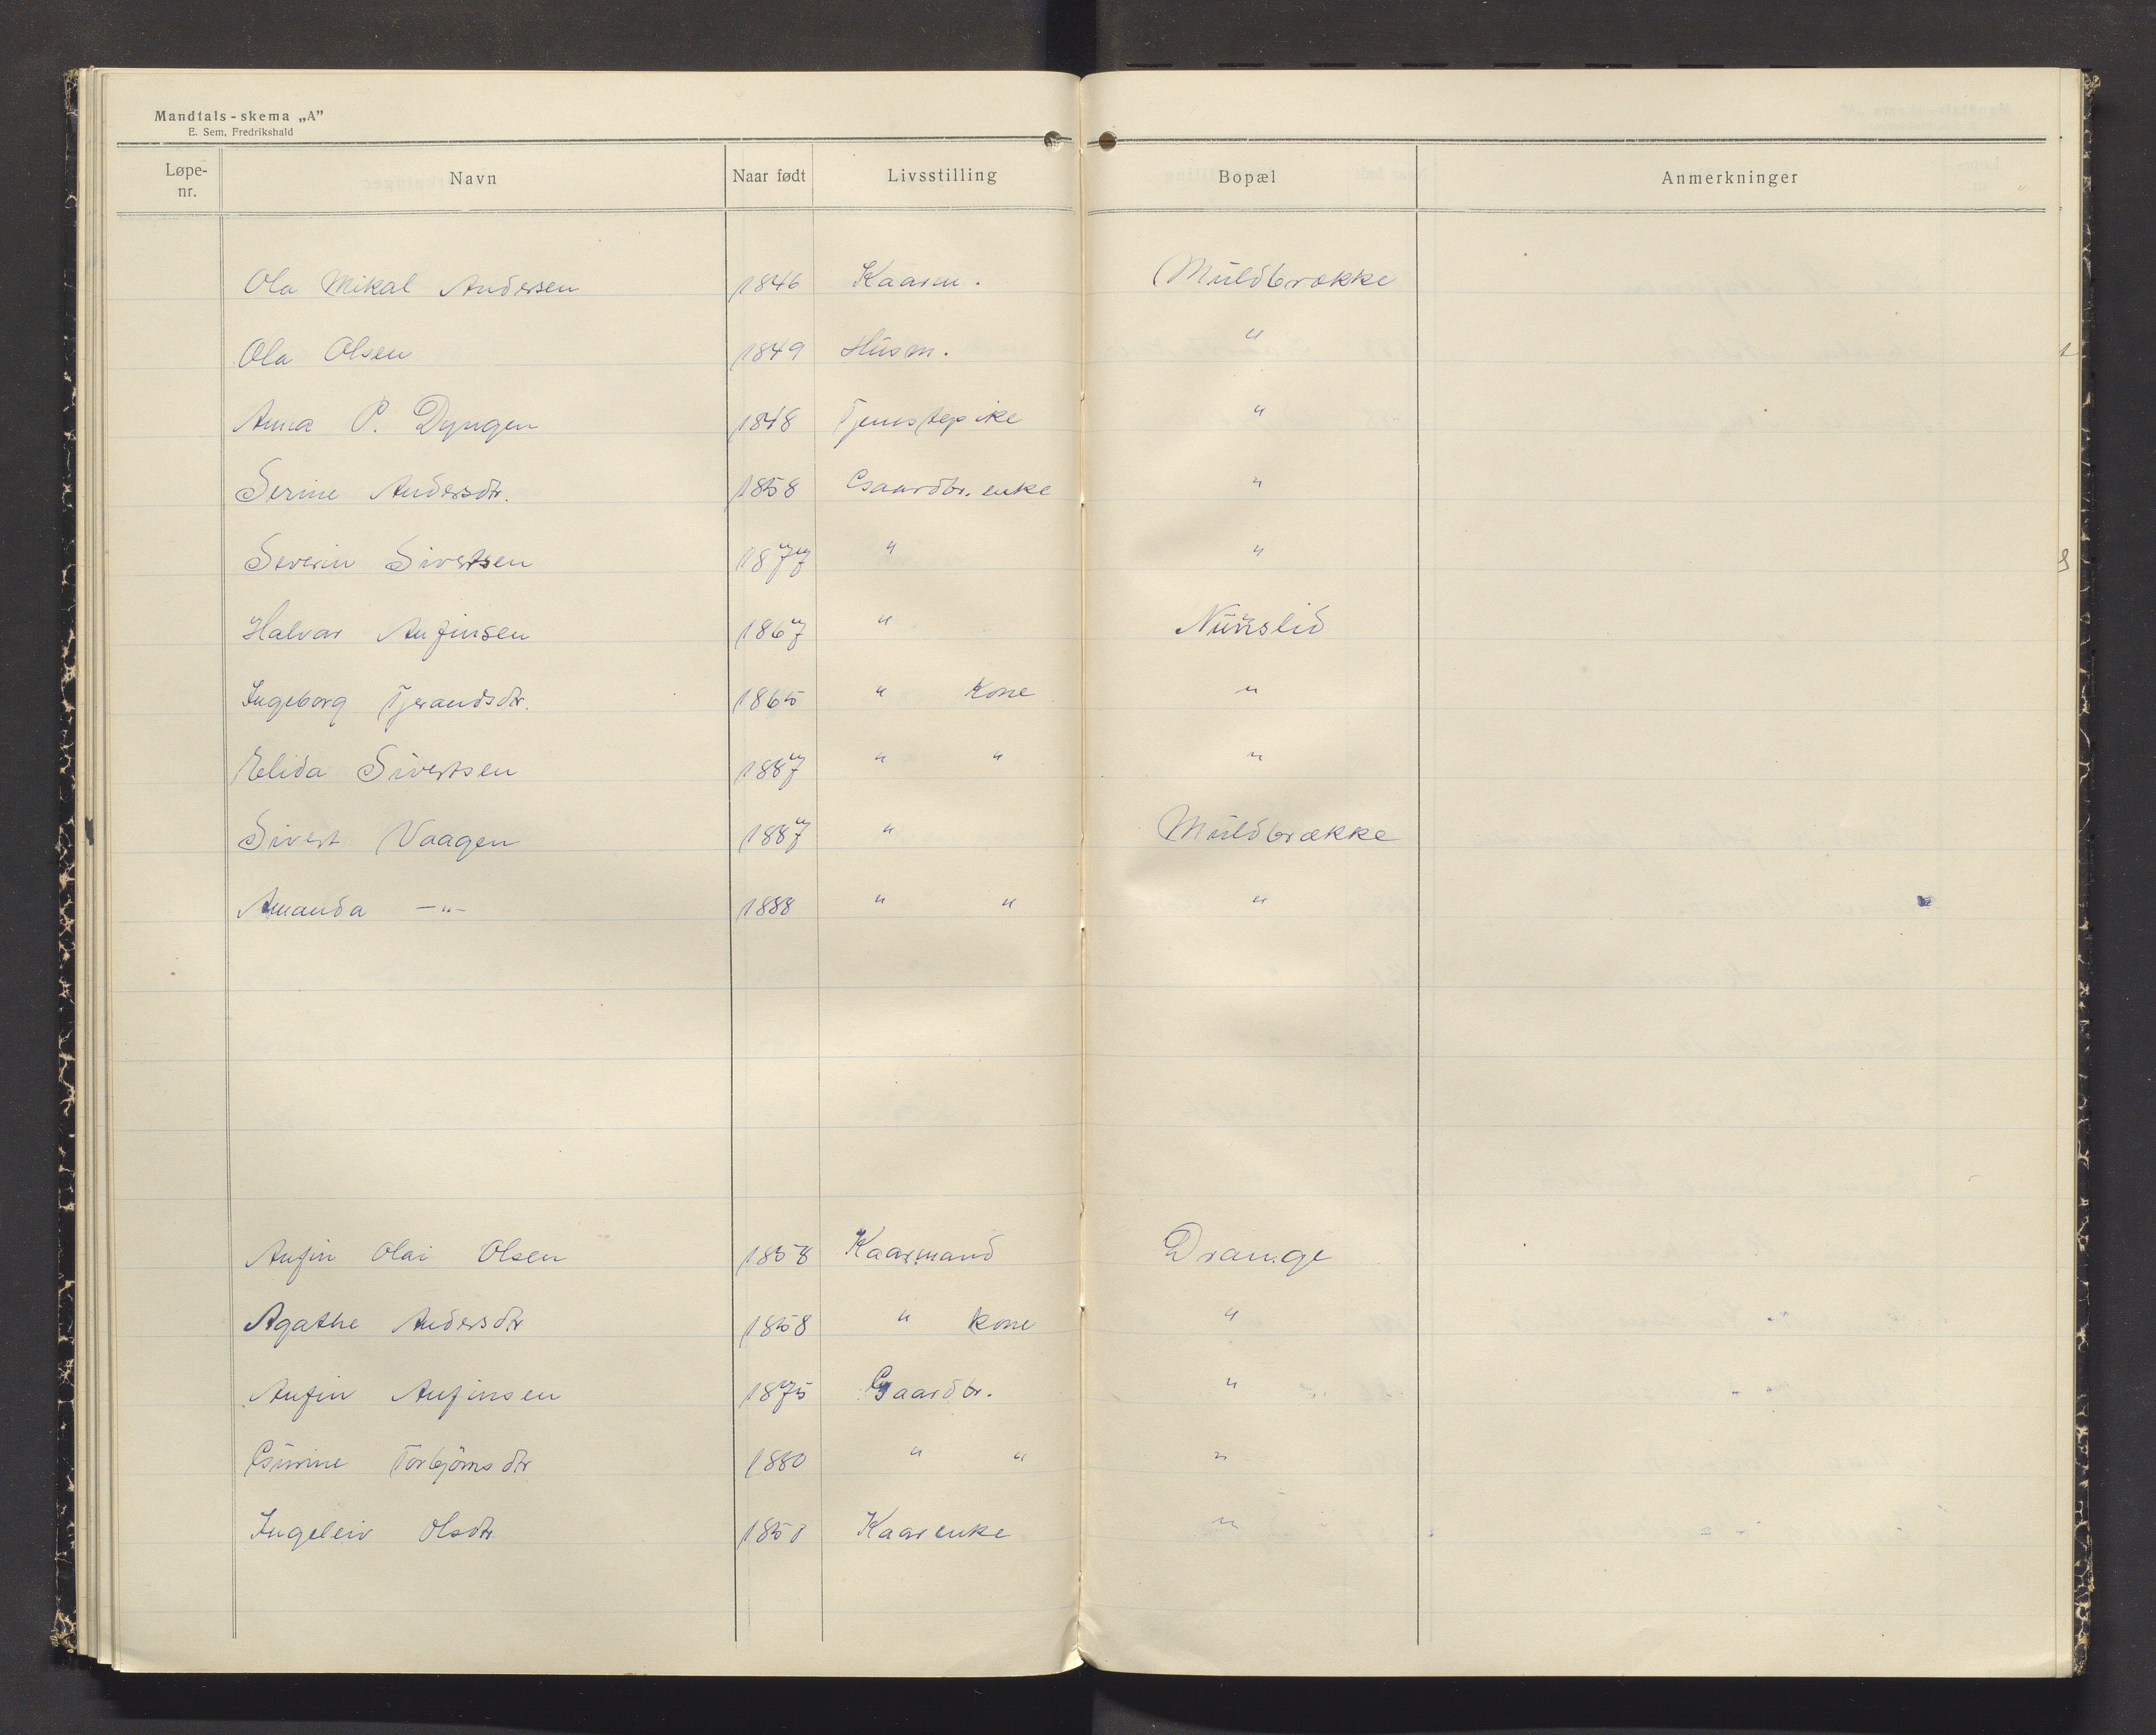 Mandtals-skema „A”
E. Sem, Fredrikshald
Løpe-nr. Navn Naar født Livsstilling Bopæl Anmerkninger
Ola Mikal Andersen 1846 Kaarm. Muldbrække
Ola Olsen 1849 Husm. "
Anna P. Dyngen 1848 Tjenstepike "
Serine Andersdtr. 1858 Gaardbr. enke "
Severin Sivertsen 1877 " "
Halvar Anfinsen 1867 "
Ingeborg Tjerandsdtr. 1865 " Kone "
Elida Sivertsen 1887 " " "
Sivert Vaagen 1887 " Muldbrække
Amanda —"— 1888 " " "
Anfin Olai Olsen 1858 Kaarmand Drange
Agathe Andersdtr 1858 " Kone "
Anfin Anfinsen 1875 Gaardbr. "
Gurine Torbjörnsdtr 1880 " " "
Ingeleiv Olsdtr Kaarenke "